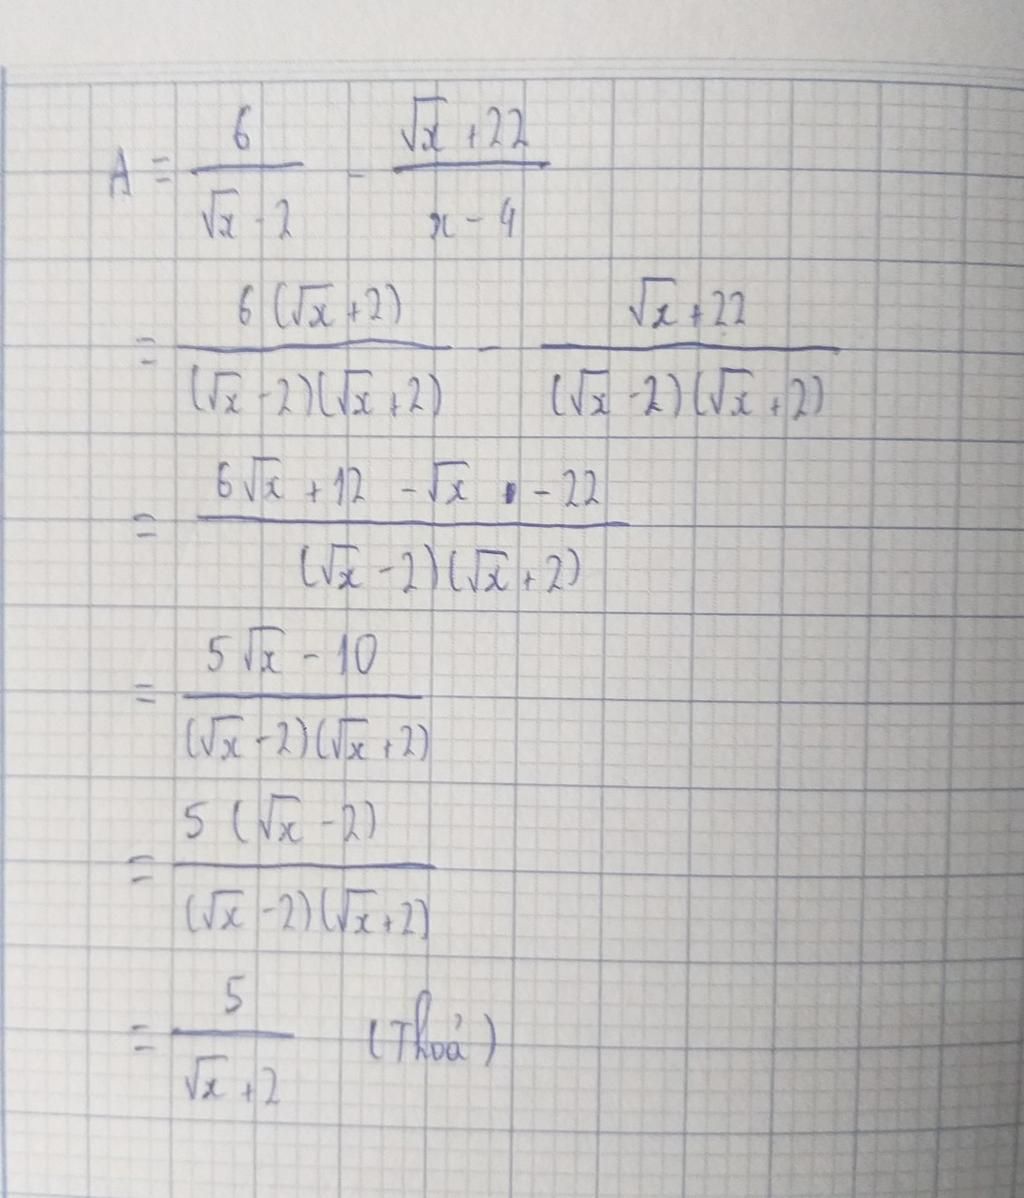 A = 6/(√x - 2) - (√x + 22)/(x - 4)
= 6(√x + 2)/((√x - 2)(√x + 2)) - (√x + 22)/((√x - 2)(√x + 2))
= (6√x + 12 - √x - 22)/((√x - 2)(√x + 2))
= (5√x - 10)/((√x - 2)(√x + 2))
= 5(√x - 2)/((√x - 2)(√x + 2))
= 5/(√x + 2) (Thoả)